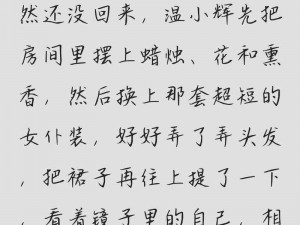 然还没回来，温小辉先把
房间里摆上蜡烛、花和熏
香，然后换上那套超短的
女仆装，好好弄了弄头发
，把裙子再往上提了一下
，看着镜子里的自己，相